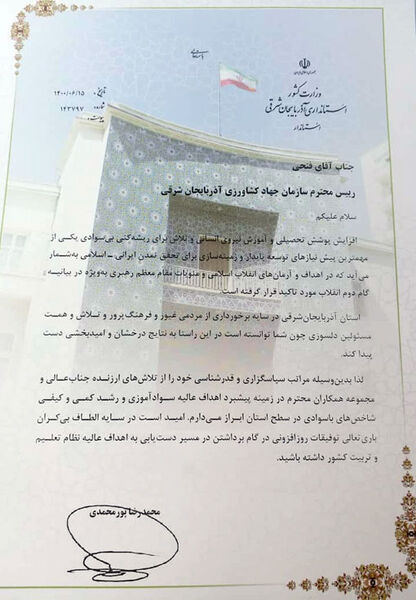 باسمه تعالی
جمهوری اسلامی ایران
وزارت کشور
استانداری آذربایجان شرقی
استاندار
تاریخ : ۱۴۰۰/۰۶/۱۵
شماره : ۱۴۳۷۹۷
پیوست :
جناب آقای فتحی
رییس محترم سازمان جهاد کشاورزی آذربایجان شرقی
سلام علیکم
افزایش پوشش تحصیلی و آموزش نیروی انسانی و تلاش برای ریشه‌کنی بی‌سوادی یکی از
مهمترین پیش نیازهای توسعه پایدار و زمینه‌سازی برای تحقق تمدن ایرانی ـ اسلامی به‌شمار
می‌آید که در اهداف و آرمان‌های انقلاب اسلامی و منویات مقام معظم رهبری به‌ویژه در بیانیه
گام دوم انقلاب مورد تاکید قرار گرفته است.
استان آذربایجان‌شرقی در سایه برخورداری از مردمی غیور و فرهنگ‌پرور و تلاش و همت
مسئولین دلسوزی چون شما توانسته است در این راستا به نتایج درخشان و امیدبخشی دست
پیدا کند.
لذا بدین‌وسیله مراتب سپاسگزاری و قدرشناسی خود را از تلاش‌های ارزنده جناب‌عالی و
مجموعه همکاران محترم در زمینه پیشبرد اهداف عالیه سوادآموزی و رشد کمی و کیفی
شاخص‌های باسوادی در سطح استان ابراز می‌دارم. امید است در سایه الطاف بی‌کران
باری‌تعالی توفیقات روزافزونی در گام برداشتن در مسیر دست‌یابی به اهداف عالیه نظام تعلیم
و تربیت کشور داشته باشید.
محمدرضا پورمحمدی